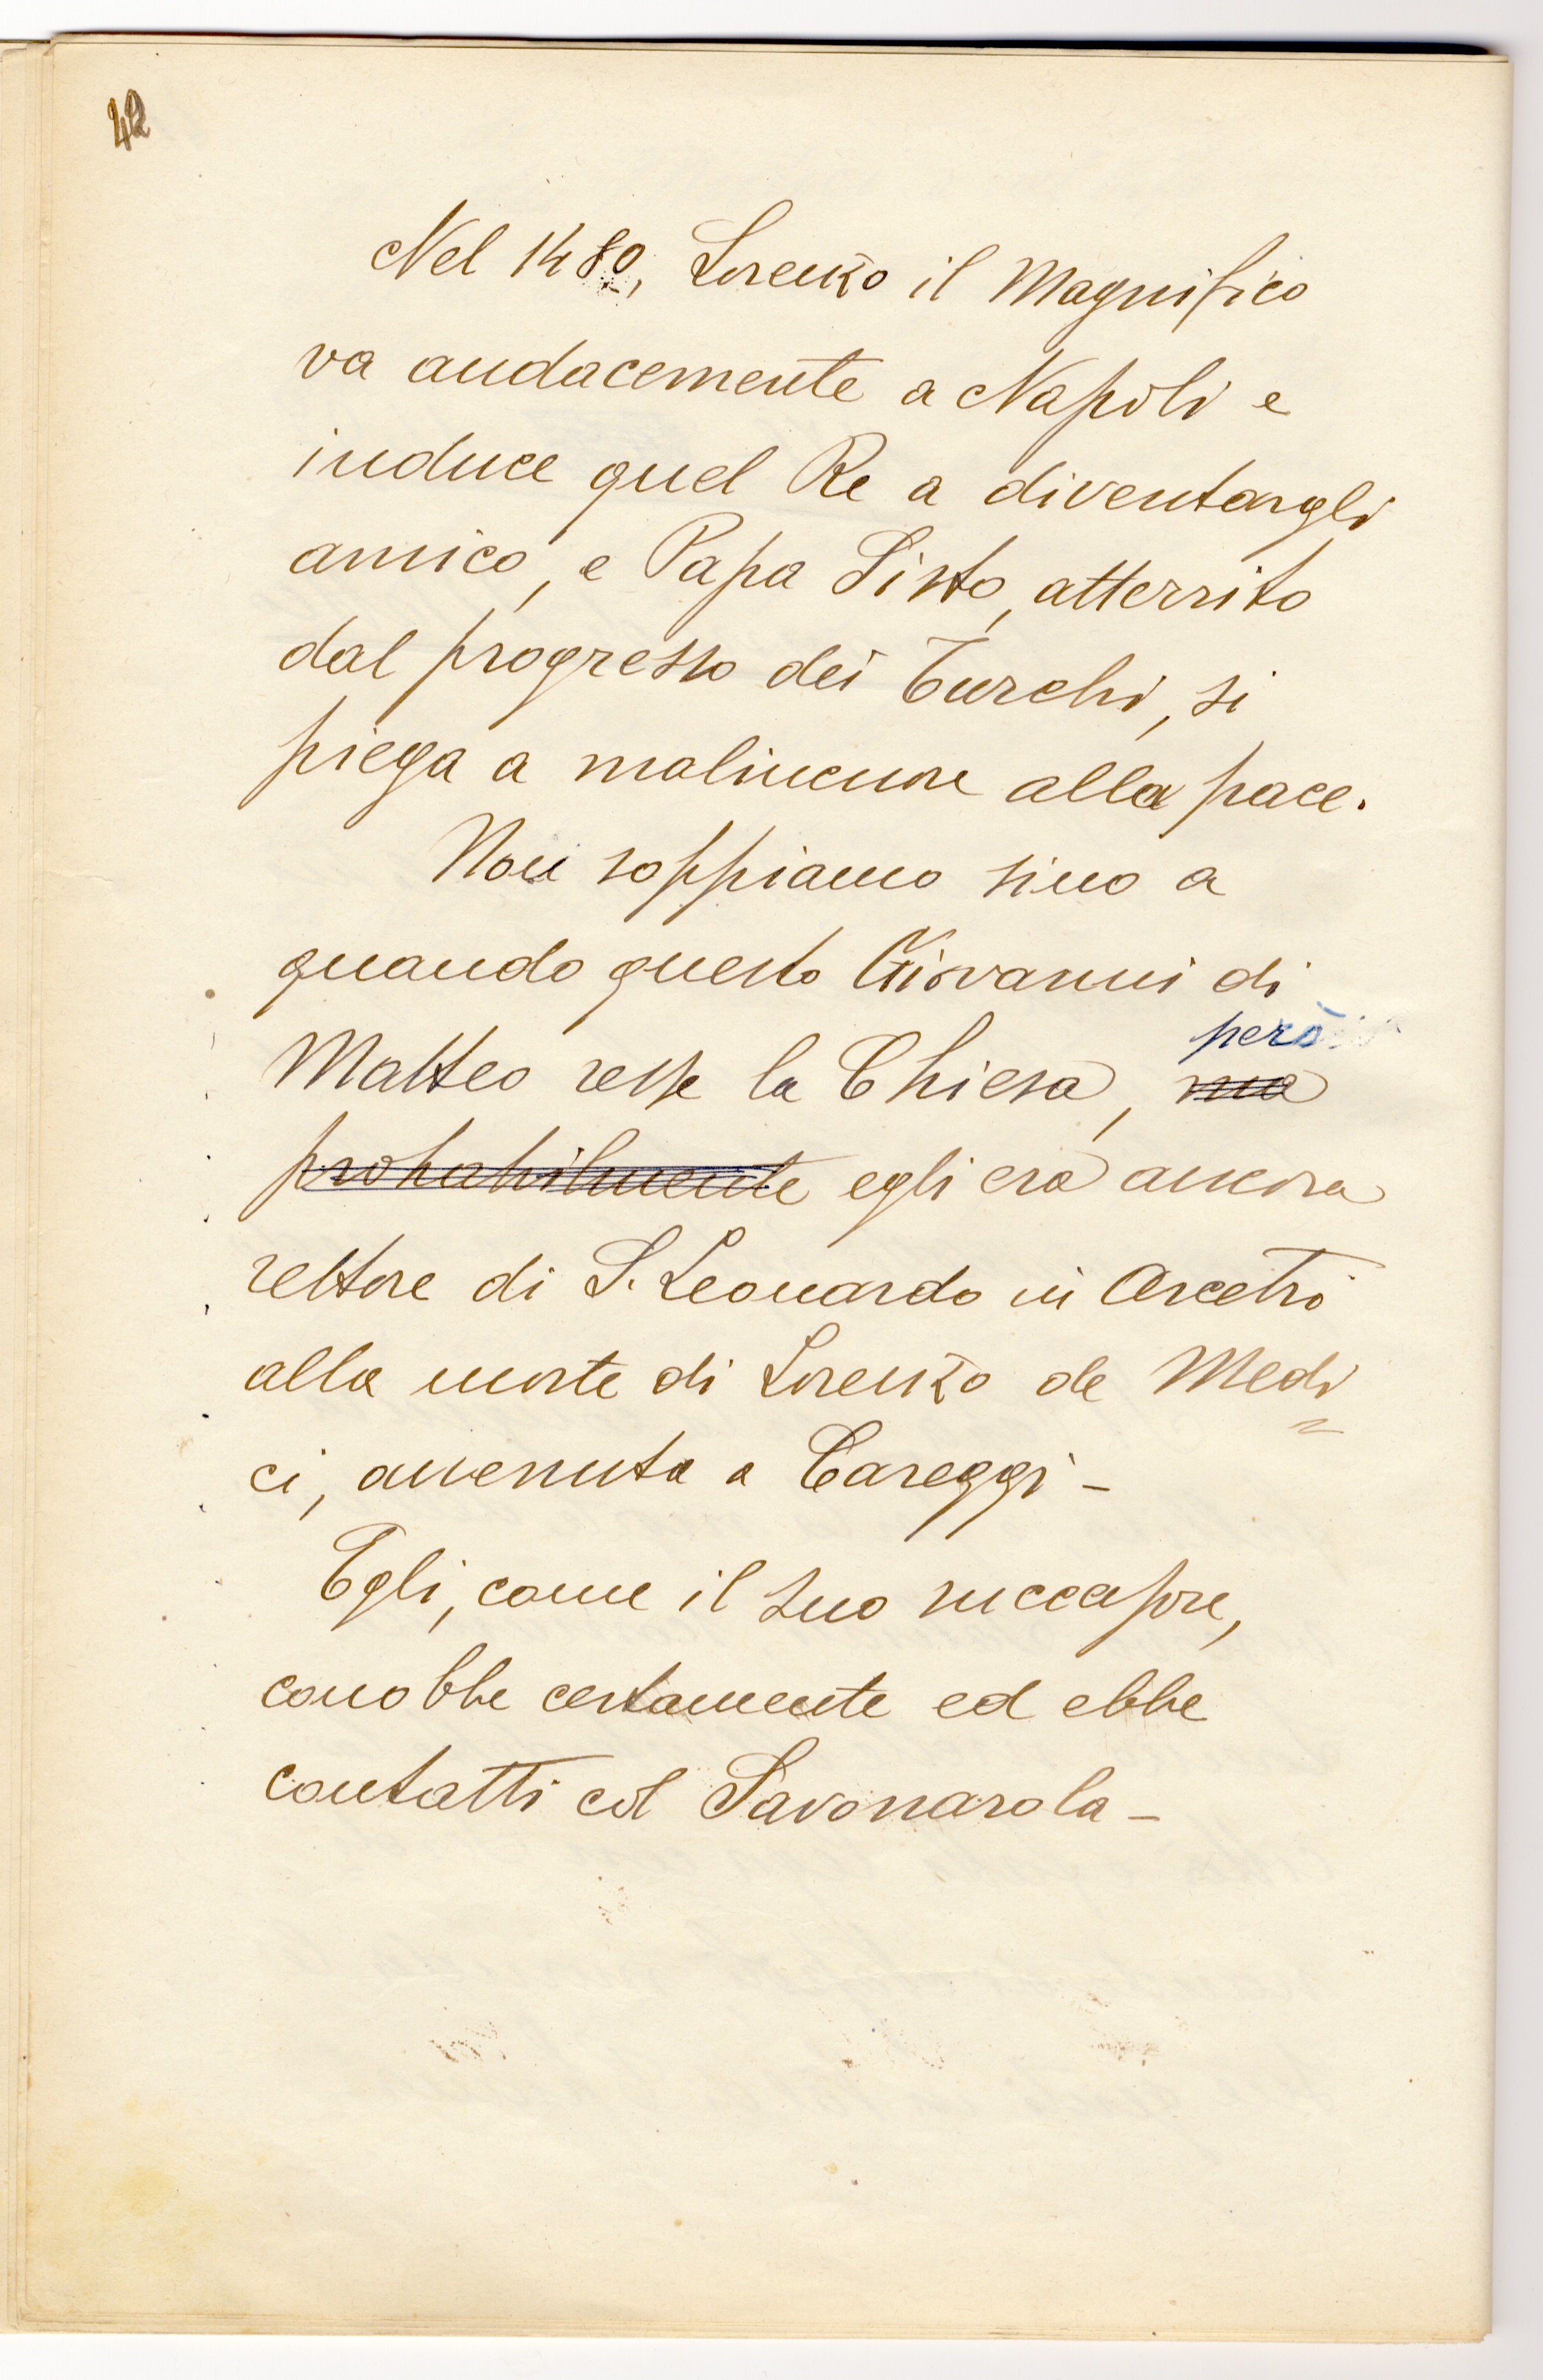 42
Nel 1480, Lorenzo il Magnifico
va audacemente a Napoli e
induce quel Re a diventargli
amico, e Papa Sisto, atterrito
dal progresso dei Turchi, si
piega a malincuore alla pace.
Non sappiamo sino a
quando questo Giovanni di
però
Matteo resse la Chiesa, ma
probabilmente egli era ancora
rettore di S. Leonardo in Arcetri
alla morte di Lorenzo de Medi
ci, avvenuta a Careggi -
Egli, come il suo successore,
conobbe certamente ed ebbe
contatti col Savonarola -